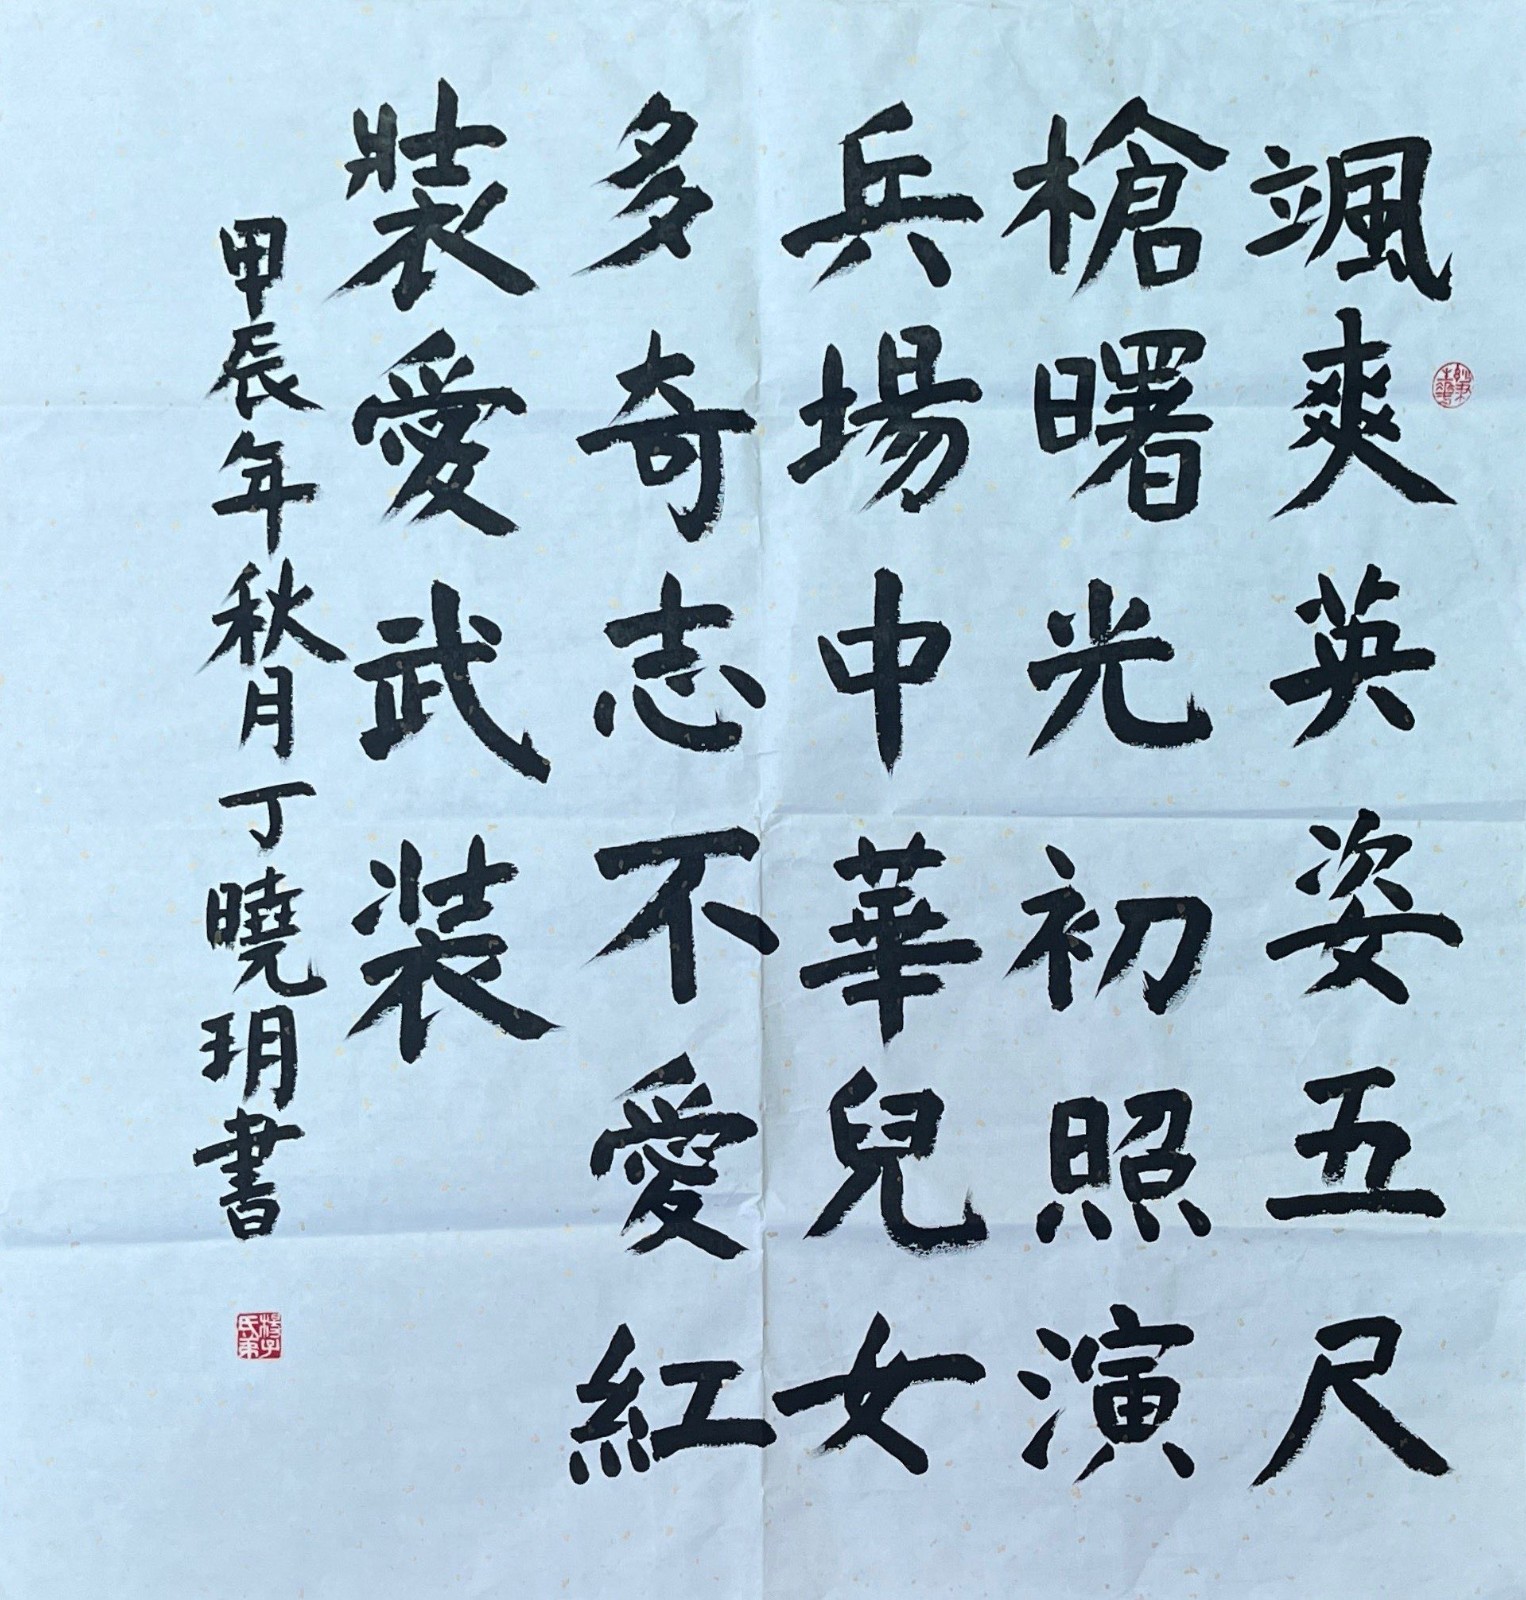 颯爽英姿五尺
槍曙光初照演
兵場中華兒女
多奇志不愛紅
裝愛武裝
甲辰年秋月丁曉玥書